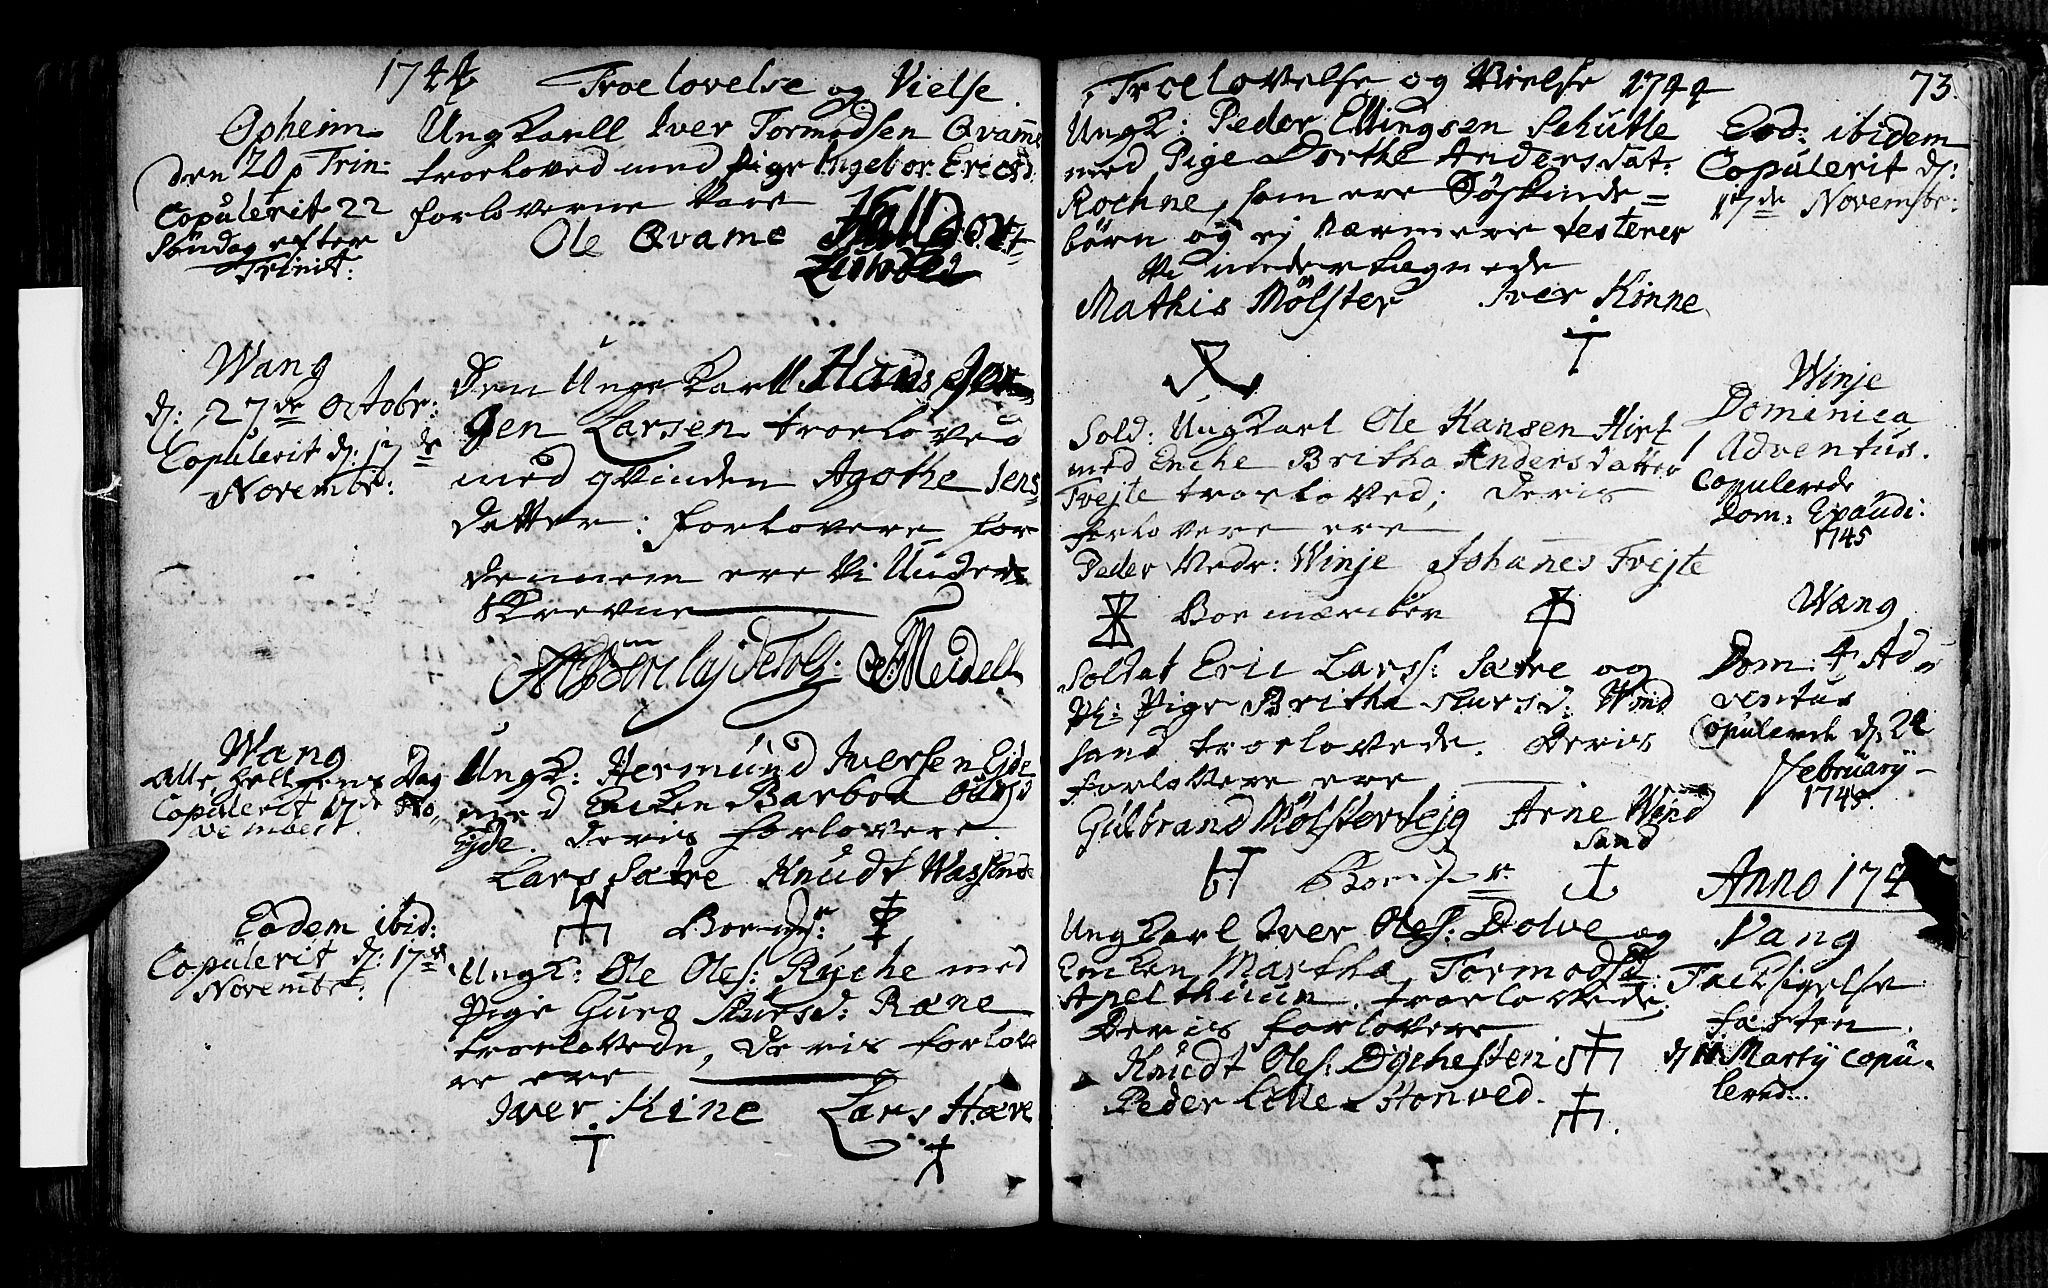 1744 Troelovelse og Vielse
Opheim
den 20 p Trin:
Copulerit 22
Søndag efter
Trinit:
Ungkarll Iver Tormodsen Qvamne
troeloved med Pige Ingebor: Ericsd:
forloverne vare
Ole Qvame Halldor
Wang
d: 27de Octobr:
Copulerit d: 17de
Novembr:
Den Unge Karll Hans Jør
gen Larsen troeloved
med qvinden Agothe Jens
datter: forlovere for
dennem ere Vi Under
skrevne
Meidell
Wang
Alle Helgens Dag
Copulerit 17de No
vembert.
Ungk: Hermund Iversen Ejde
med Encken Barboa Olavsd
Ejde. deris forlovere
Lars Sætre Knudt Wassende
Boemærker
Eodem ibid:
Copulerit d: 17de
Novembr:
Ungk: Ole Oles: Ryche med
Pige Guro Sjursd: Ræne
troelovede, deris forlove
re ere
Iver Kine Lars Hæve
Troelovelse og Vielse 1744 73.
Ungk: Peder Ellingsen Schutle
med Pige Dorthe Andersdat:
Rochne, som ere Søskinde=
børn og ej nærmere testerer
Vi undertegnede
Mathis Mölster Iver Kinne
Eod: ibidem
Copulerit d:
17de Novembr:
Sold: Ungkarl Ole Hansen Hirt
med Enche Britha Andersdatter
Tvejte troeloved; deris
forlovere ere
Peder Nedr: Winje Johanes Tvejte
Boemærcker
Winje
Dominica
1 Adventus.
Copulerede
Dom: Epaudi:
1745
Soldat Eric Larss: Sætre og
Pige Britha Siursd: Wind
sand troelovede. Deris
forlovere ere
Gulbrand Mölstertejg Arne Wind
sand
Wang
Dom: 4 Ad=
ventus
Copulerede d: 24
February
1745.
Anno 174
Ungkarl Iver Oles: Dolve og
Encken Martha Tormodsd:
Apelthuun troelovede.
Deris forlovere
Knudt Oles: Dychesten
Peder Lille Honved.
Vang
Tacksigelse
fasten
d 11 Marty Copu-
lered: